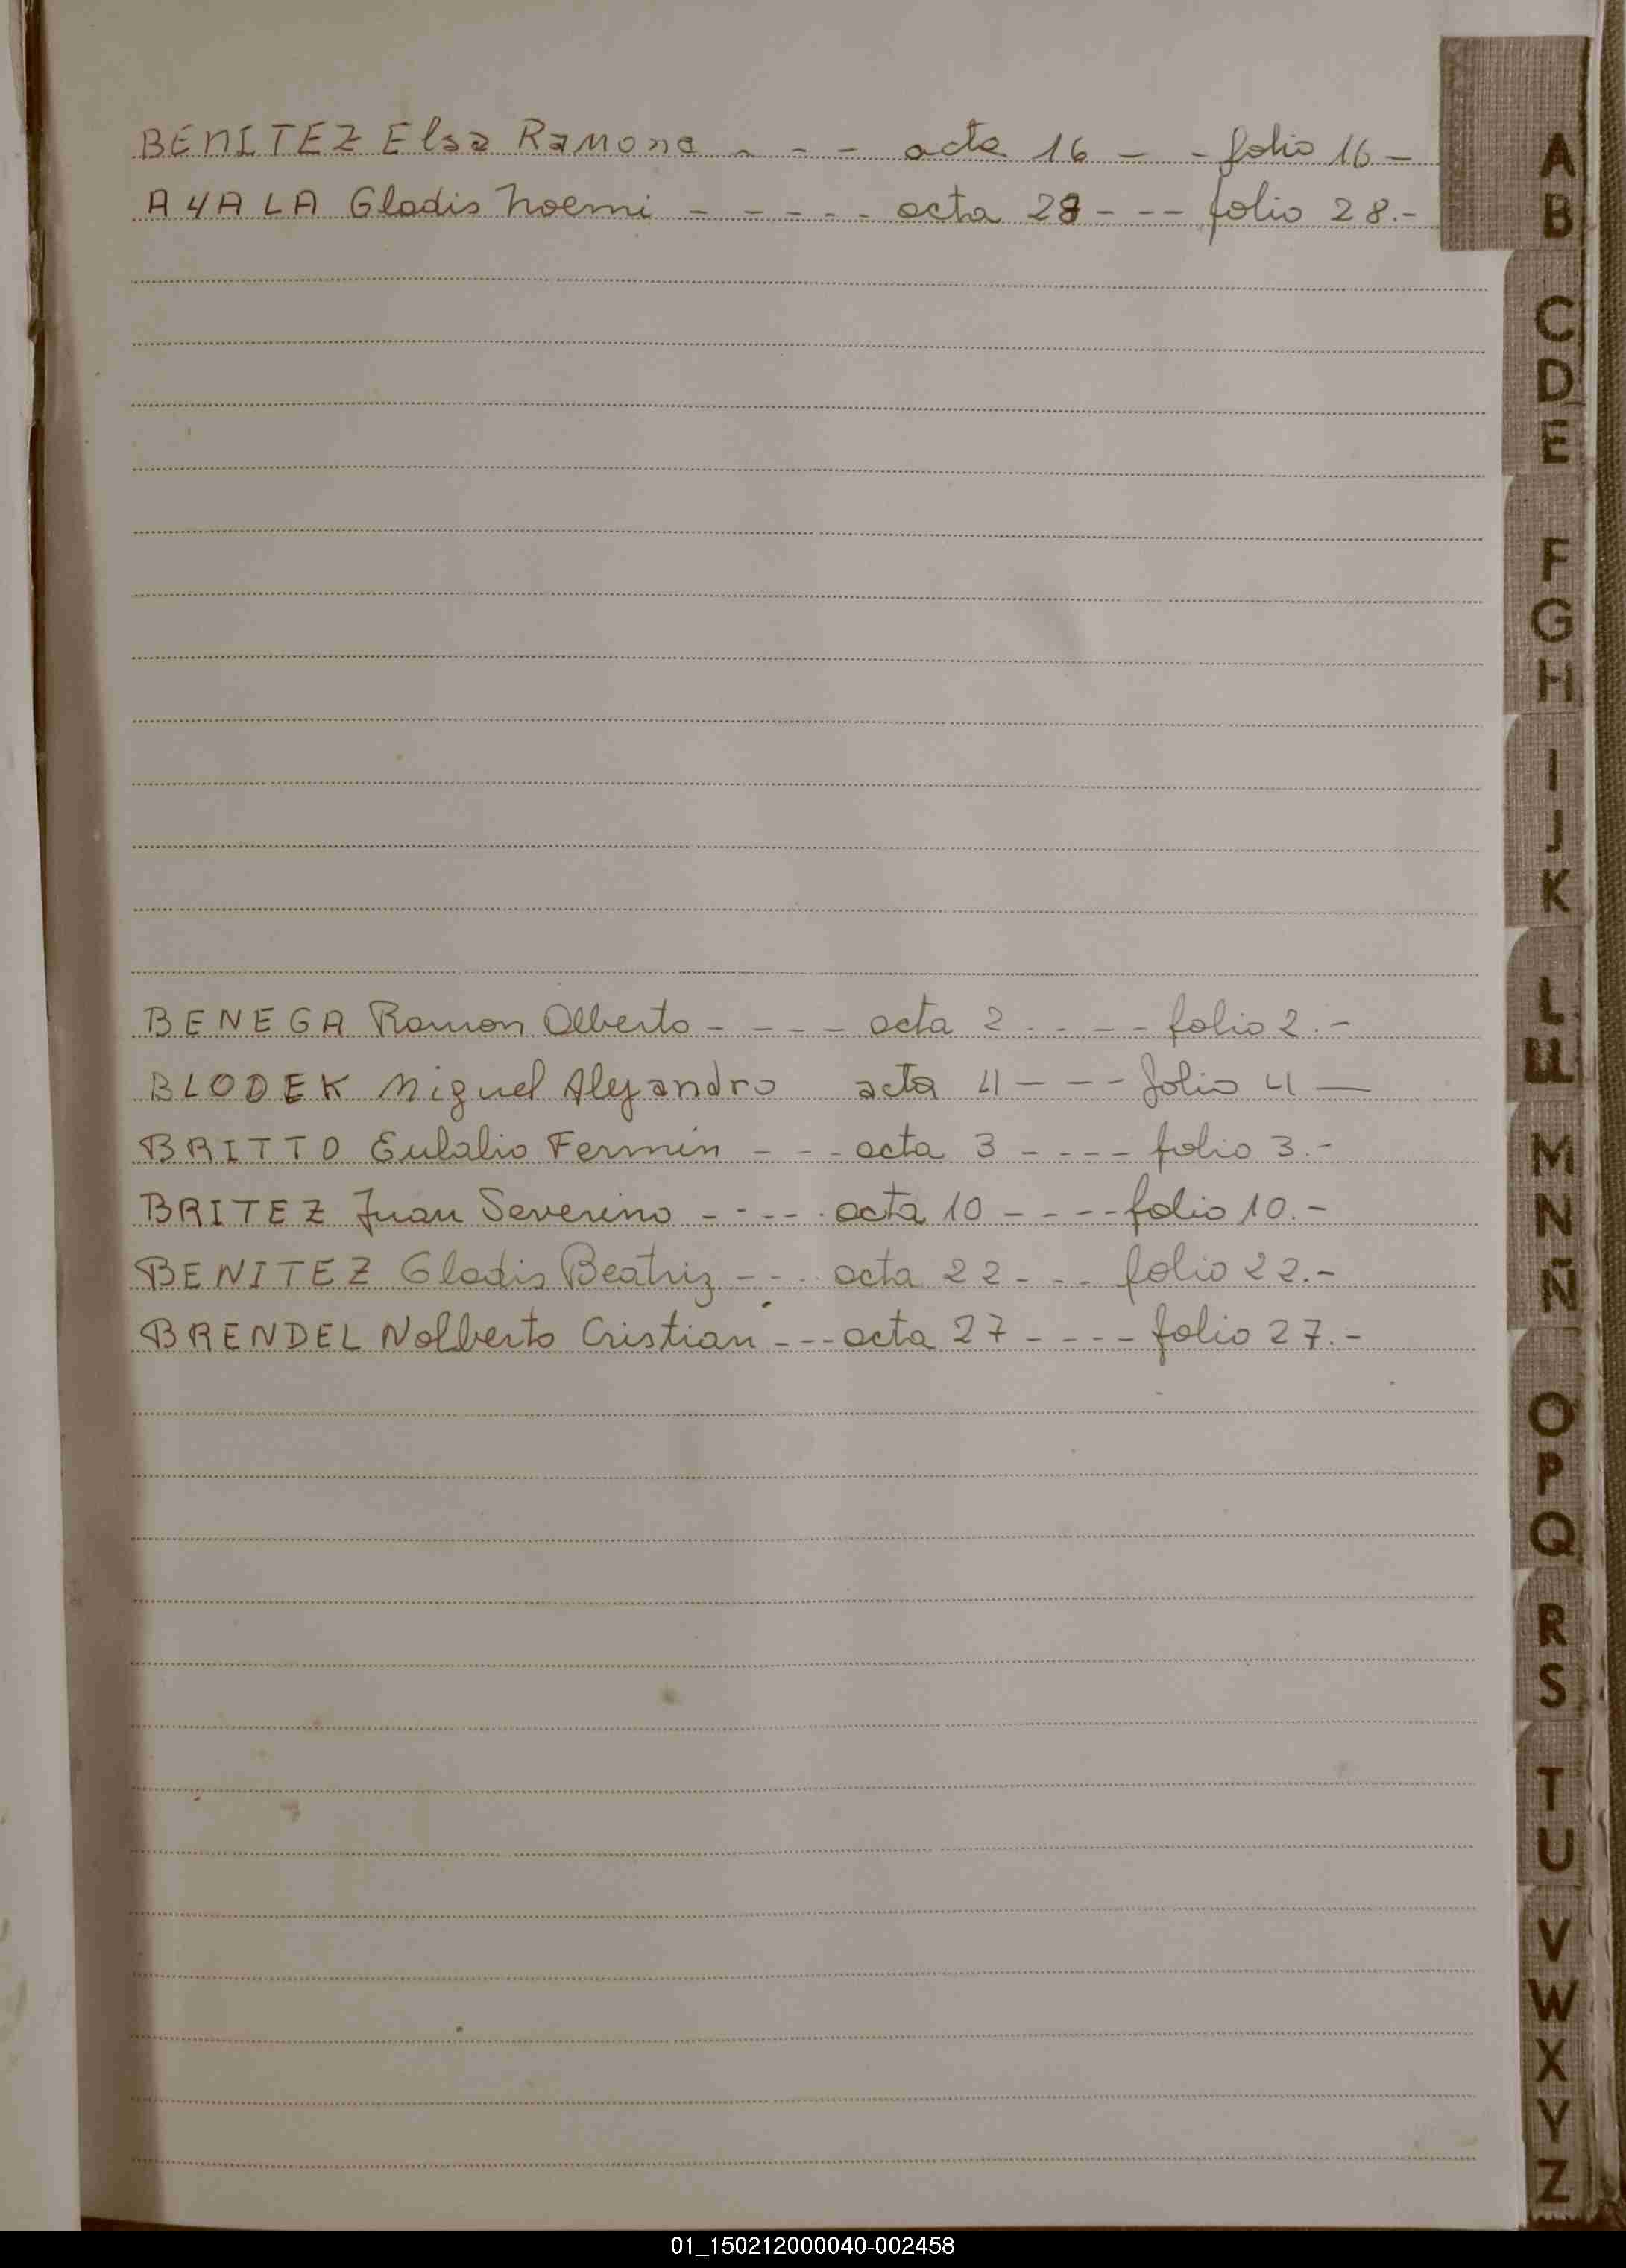 BENITEZ Elsa Ramona - - - - acta 16 - - folio 16 -
AYALA Gladis Noemi - - - - - acta 28 - - - folio 28.-
BENEGA Ramon Alberto - - - - acta 2 - - - - folio 2.-
BLODEK Miguel Alejandro acta 4 - - - folio 4 -
BRITTO Eulalio Fermin - - - acta 3 - - - - folio 3.-
BRITEZ Juan Severino - - - - acta 10 - - - - folio 10.-
BENITEZ Gladis Beatriz - - - acta 22 - - - folio 22.-
BRENDEL Nolberto Cristian - - - acta 27 - - - - folio 27.-
A
B
C
D
E
F
G
H
I
J
K
L
LL
M
N
Ñ
O
P
Q
R
S
T
U
V
W
X
Y
Z
01_150212000040-002458